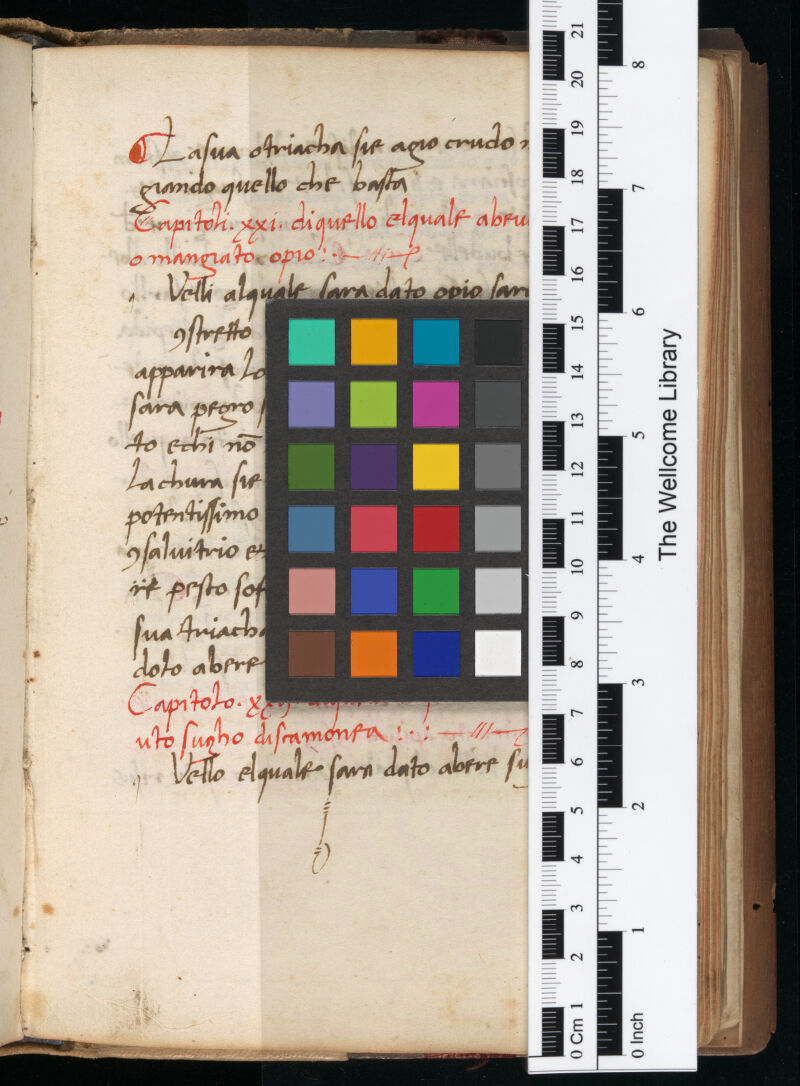 La sua otriacha sie agio crudo
giando quello che basta
Capitoli. xxi. di quello elquale abeu
o mangiato opio
Velli alquale sara dato opio sar
ɔstretto
apparira lo
sara pegro
to echi nō
La chura sie
potentissimo
ɔsalnitrio et
pesto sof
sua triacha
dolo abere
Capitolo. xx
uto sugho discamonea
Vello elquale sara dato abere su
The Wellcome Library
0 Cm 1 2 3 4 5 6 7 8 9 10 11 12 13 14 15 16 17 18 19 20 21
0 Inch 1 2 3 4 5 6 7 8